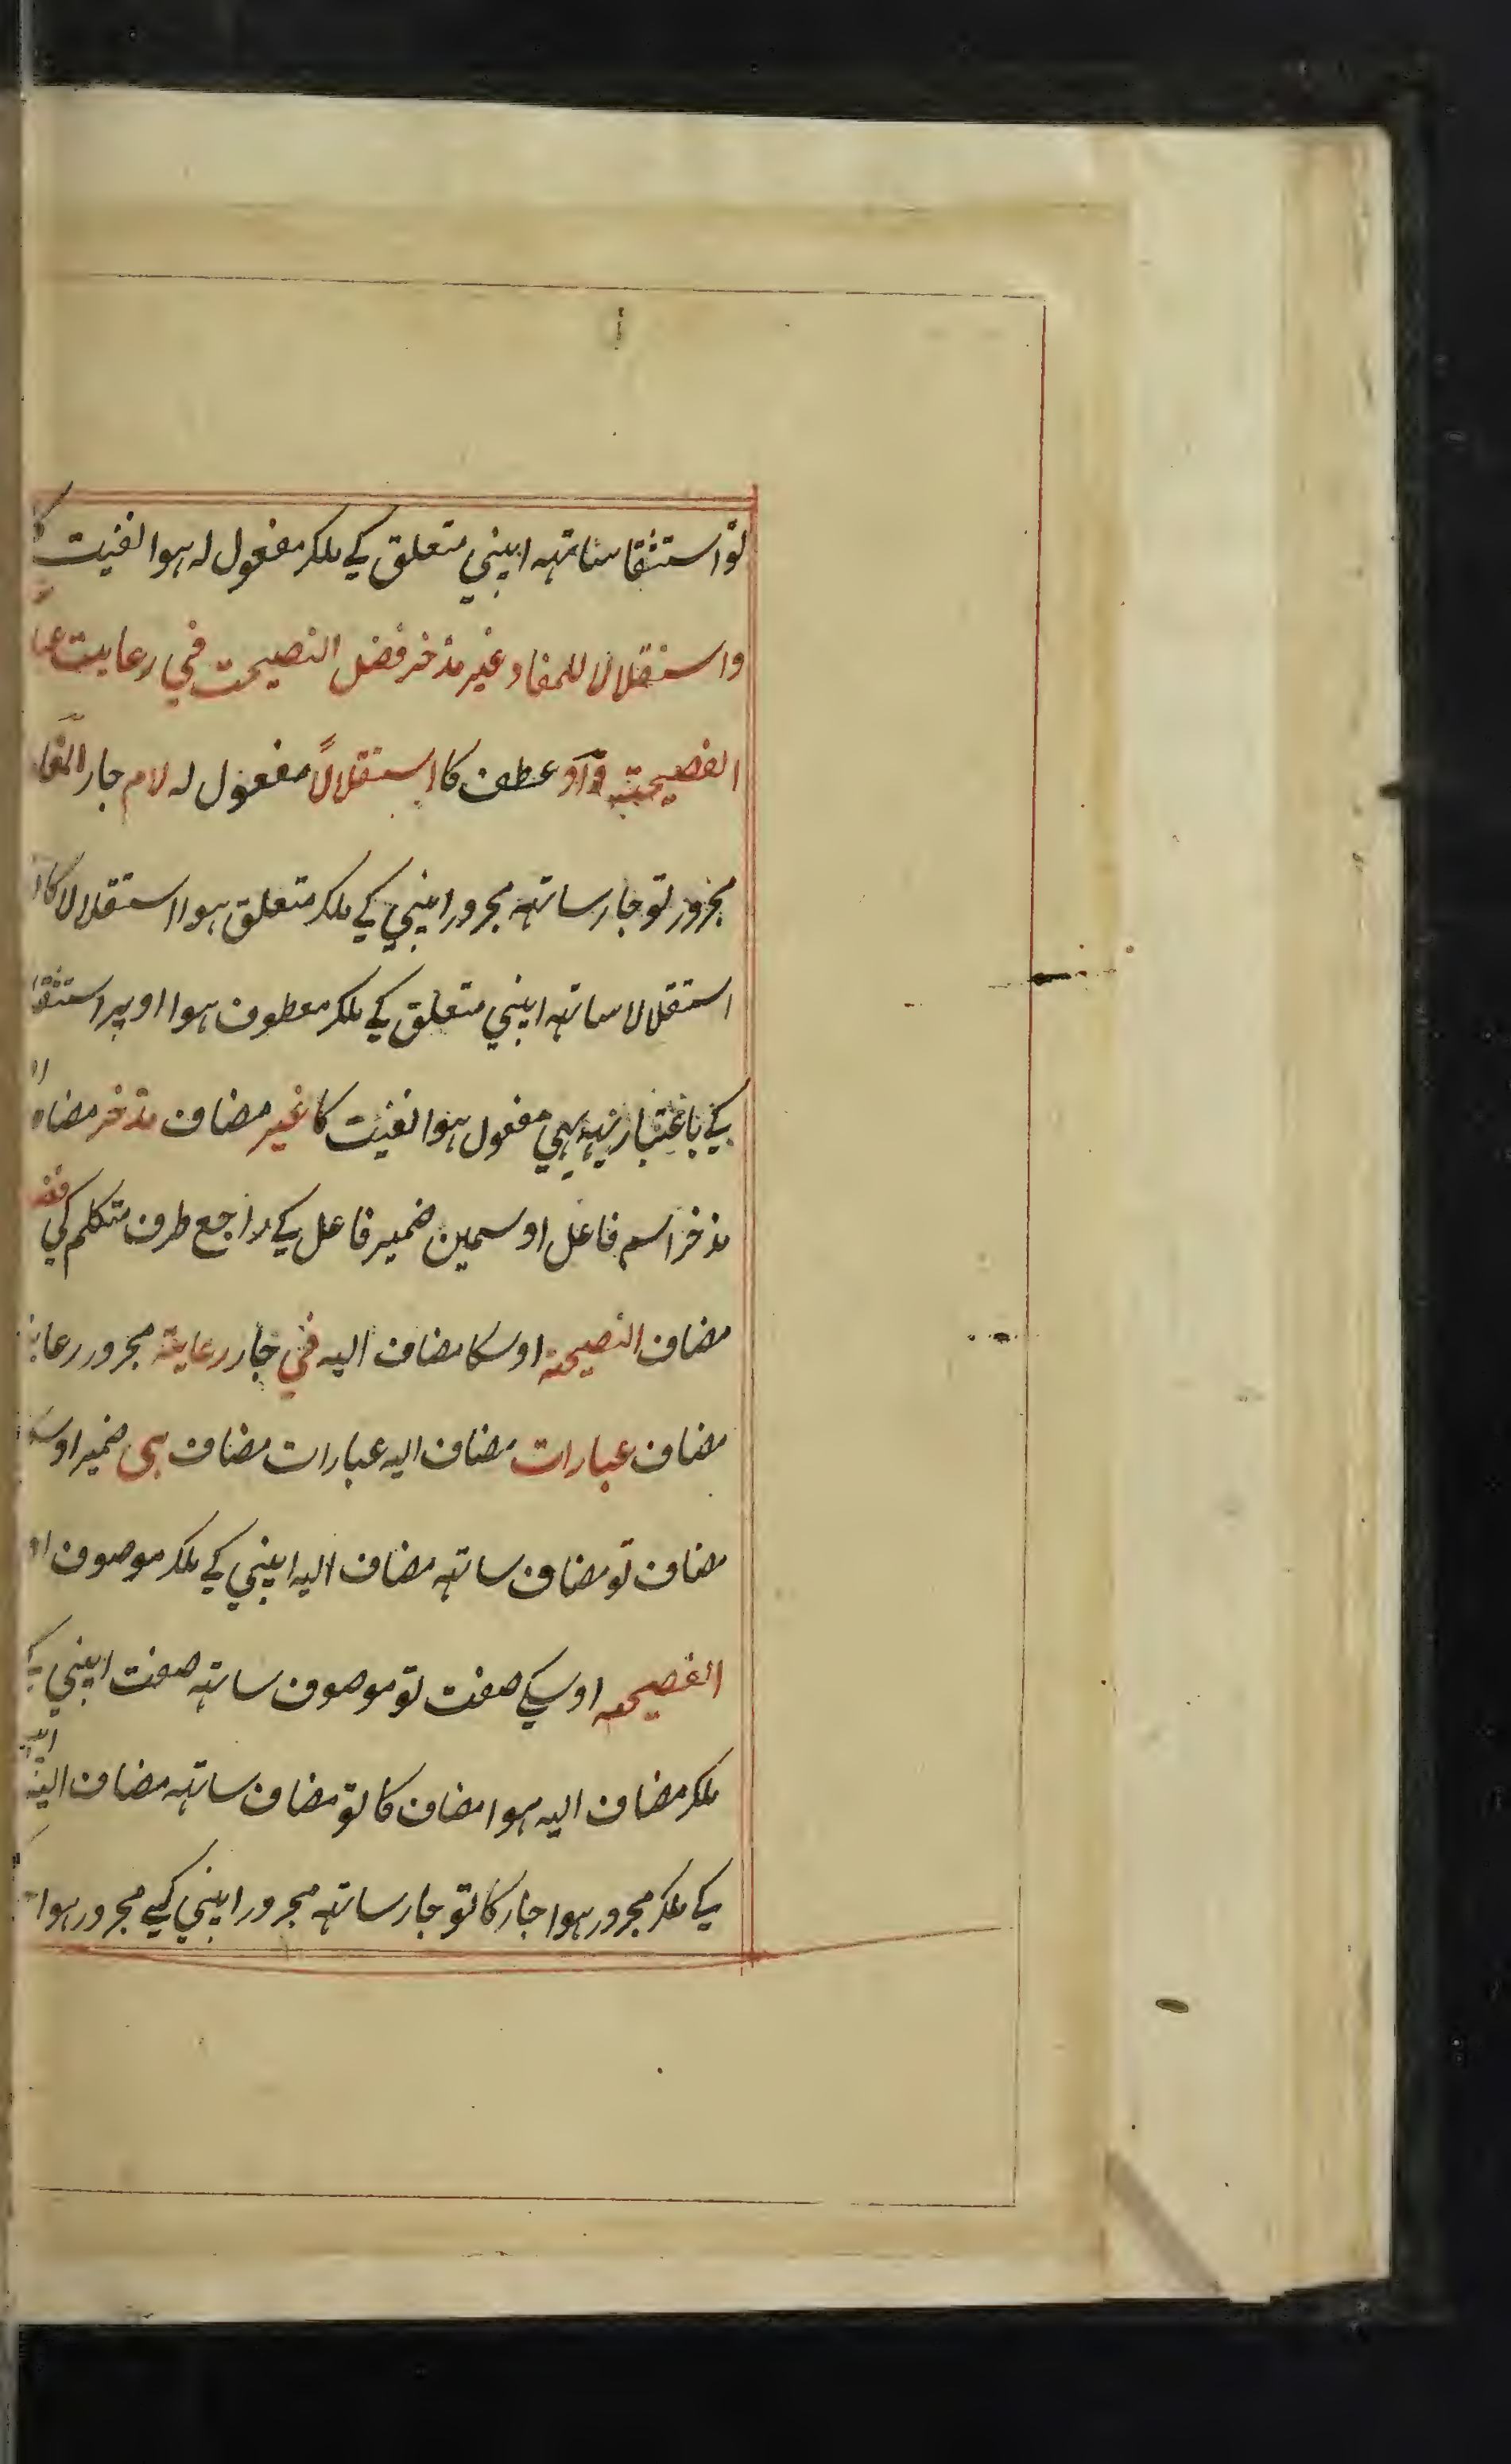 تو استثقا ساتهہ اپنی متعلق کے ملکر مفعول لہ ہوا لغیت کا
واستقلالا للمفاد غیر مذخر فضل النصیحت فی رعایت
الفصیحتہ واو عطف کا استقلالًا مفعول لہ لام جار المفاد
مجرور تو جار ساتهہ مجرور اپنی کے ملکر متعلق ہوا استقلالا کا
استقلالا ساتهہ اپنی متعلق کے ملکر معطوف ہوا اوپر استثقا
کے باعتبار یہہ بہی مفعول ہوا لغیت کا غیر مضاف مذخر مضاف
مذخر اسم فاعل اوسمین ضمیر فاعل کے راجع طرف متکلم کی فضل
مضاف النصیحہ اوسکا مضاف الیہ فی جار رعایۃ مجرور رعایۃ
مضاف عبارات مضاف الیہ عبارات مضاف ہی ضمیر
مضاف تو مضاف ساتهہ مضاف الیہ اپنی کے ملکر موصوف
الفصیحہ اوسکے صفت تو موصوف ساتهہ صفت اپنی کے
ملکر مضاف الیہ ہوا مضاف کا تو مضاف ساتهہ مضاف الیہ
کے ملکر مجرور ہوا جار کا تو جار ساتهہ مجرور اپنی کے مجرور ہوا